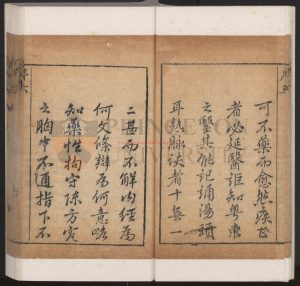 可不藥而愈然疾甚
者必延醫詎知粵東
之醫其能記誦湯頭
耳熟脉訣者十無一
二甚而不解内經為
何文條辨為何意略
知藥性拘守陳方
之胸中不通指下不
PRINCETON
UNIVERSITY